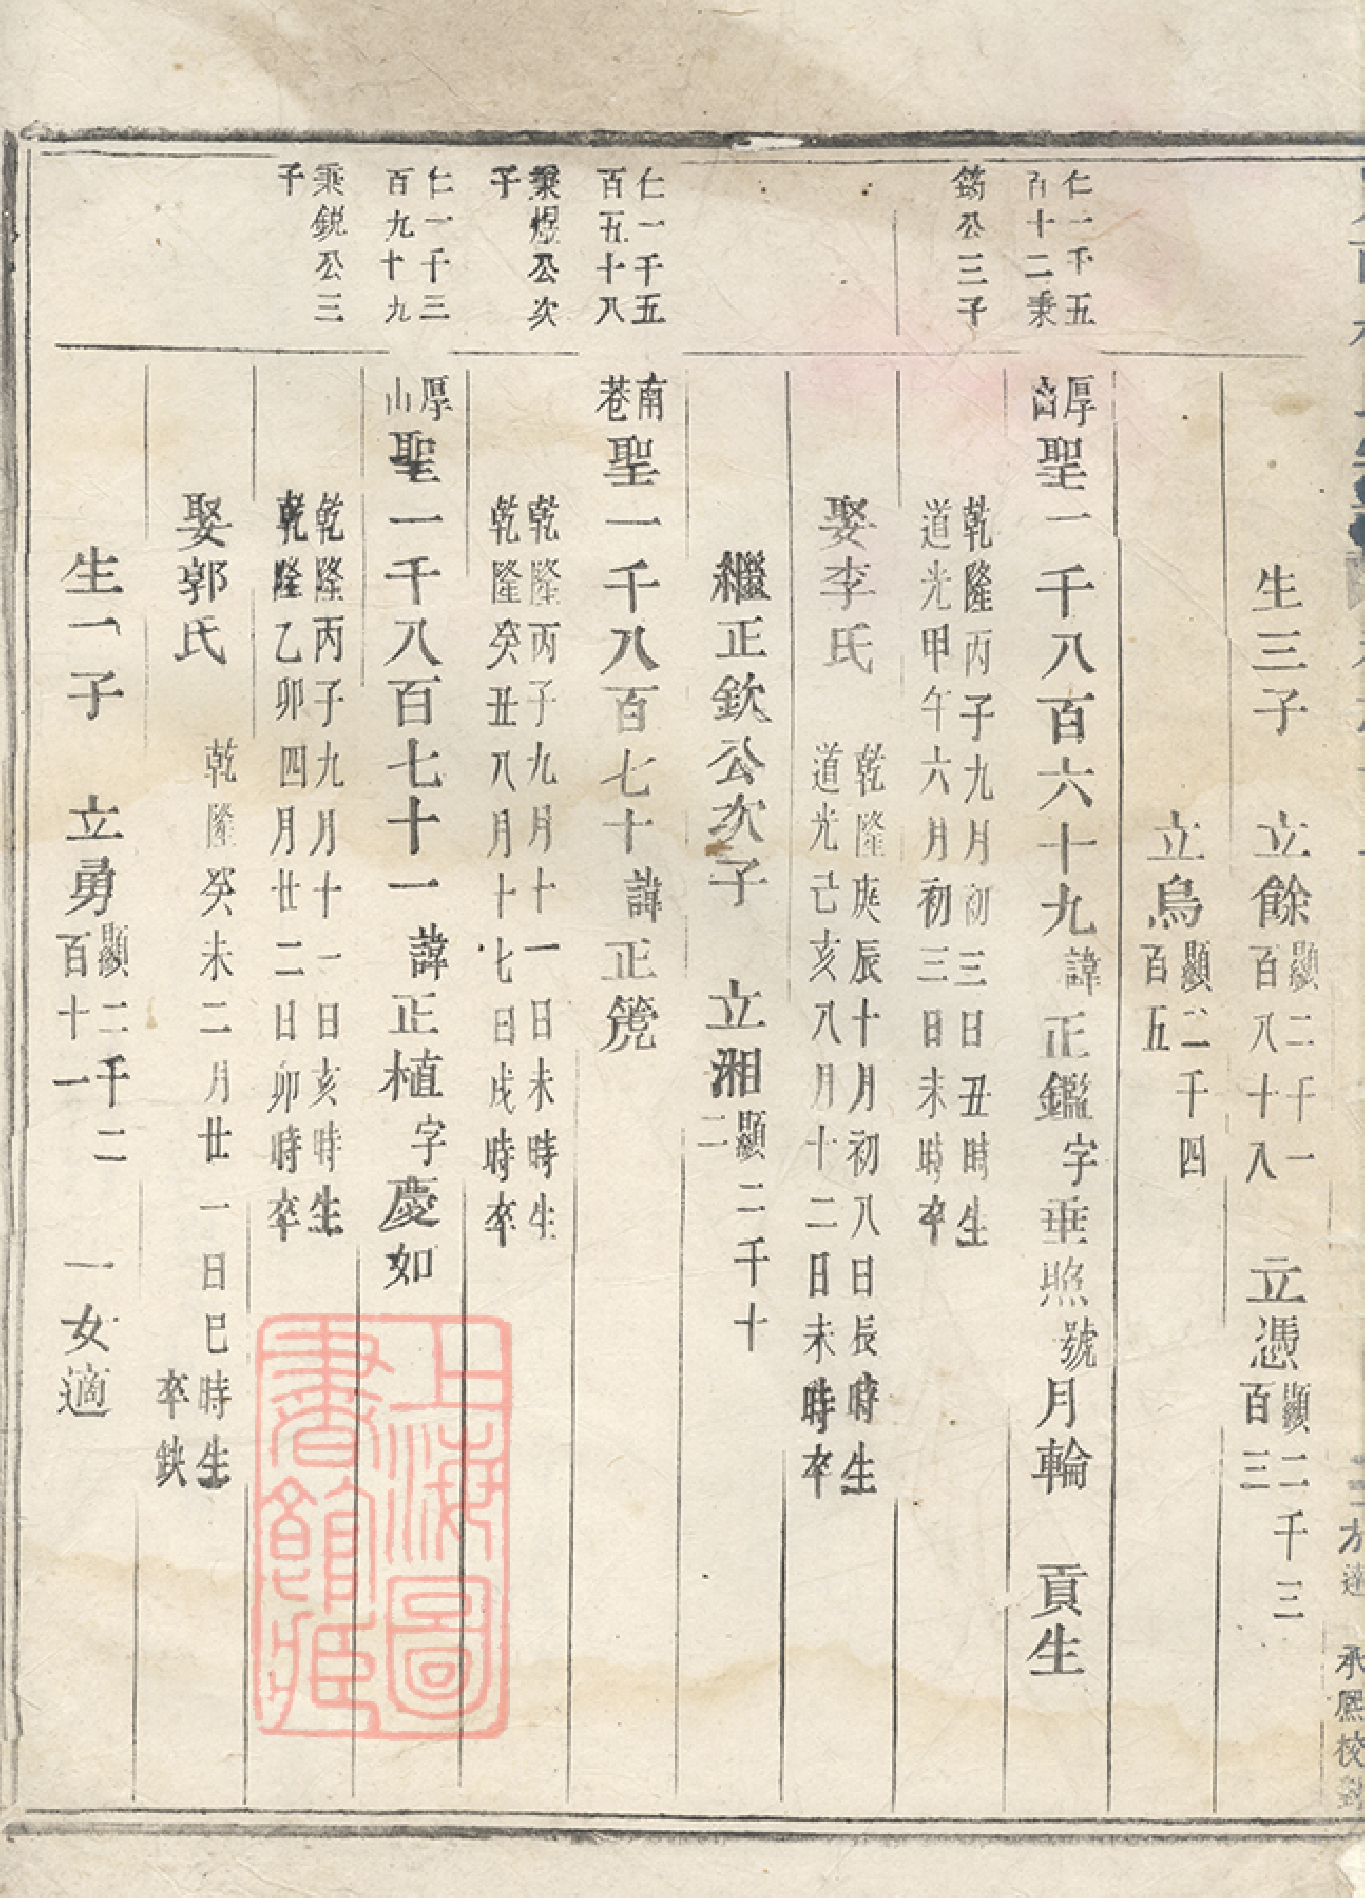 生三子　立餘顯二千一百八十八　立憑顯二千三百三
立烏顯二千四百五
仁一千五百十二秉
鎊公三子
厚畲聖一千八百六十九諱正鑑字垂照號月輪　貢生
乾隆丙子九月初三日丑時生
道光甲午六月初三日未時卒
娶李氏
乾隆庚辰十月初八日辰時生
道光己亥八月十二日未時卒
繼正欽公次子　立湘顯二千十二
仁一千五百五十八
秉煜公次子
南巷聖一千八百七十諱正篪
乾隆丙子九月十一日未時生
乾隆癸丑八月十七日戌時卒
仁一千三百九十九
秉銳公三子
厚山聖一千八百七十一諱正植字慶如
乾隆丙子九月十一日亥時生
乾隆乙卯四月廿二日卯時卒
娶郭氏
乾隆癸未二月廿一日巳時生
卒缺
生一子　立勇顯二千二百十一　一女適
承熙校對
上海圖書館藏